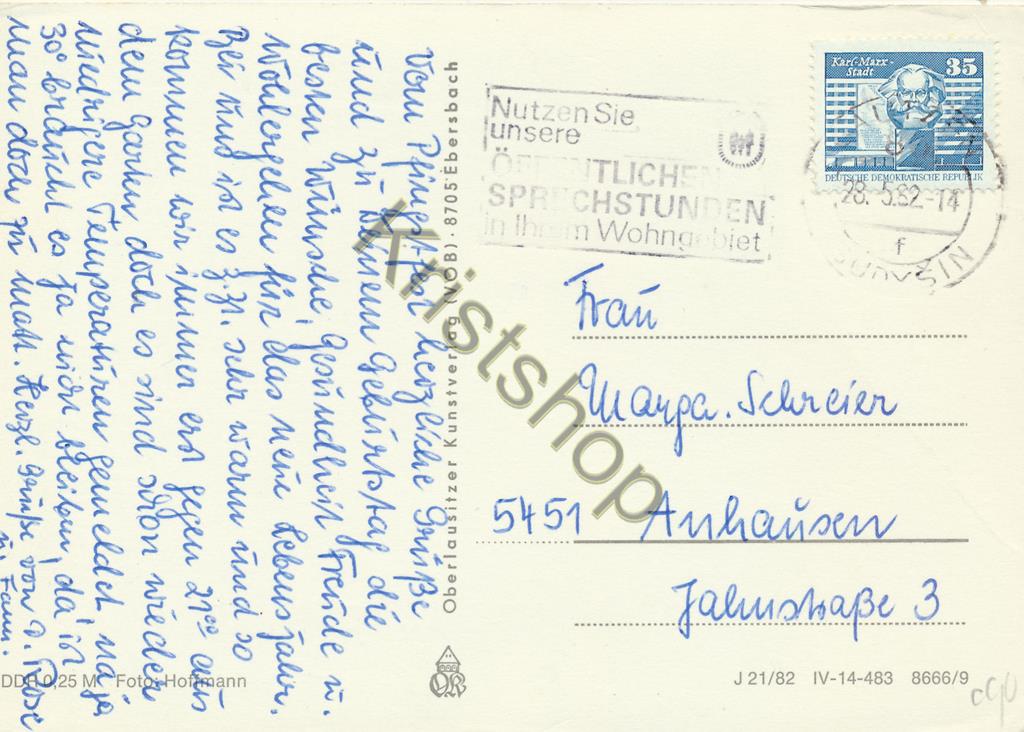 Vom Pfingstfest herzliche Grüße
und zu Deinem Geburtstag die
besten Wünsche, Gesundheit Freude u.
Wohlergehen für das neue Lebensjahr.
Bei uns ist es z.Zt. sehr warm und so
kommen wir immer erst gegen 21⁰⁰ aus
dem Garten doch es sind schon wieder
niedrigere Temperaturen gemeldet, na ja
30° braucht es ja nicht bleiben, da ist
man doch zu matt. Herzl. Grüße von D. Rose
u. Fam.
Oberlausitzer Kunstverlag (VOB) · 8705 Ebersbach
Nutzen Sie
unsere
ÖFFENTLICHEN
SPRECHSTUNDEN
in Ihrem Wohngebiet
Karl-Marx-
Stadt
35
DEUTSCHE DEMOKRATISCHE REPUBLIK
28.5.82-14
f
Frau
Marga. Schreier
5451 Anhausen
Jahnstraße 3
Kristshop
DDR 0,25 M Foto: Hoffmann
J 21/82 IV-14-483 8666/9